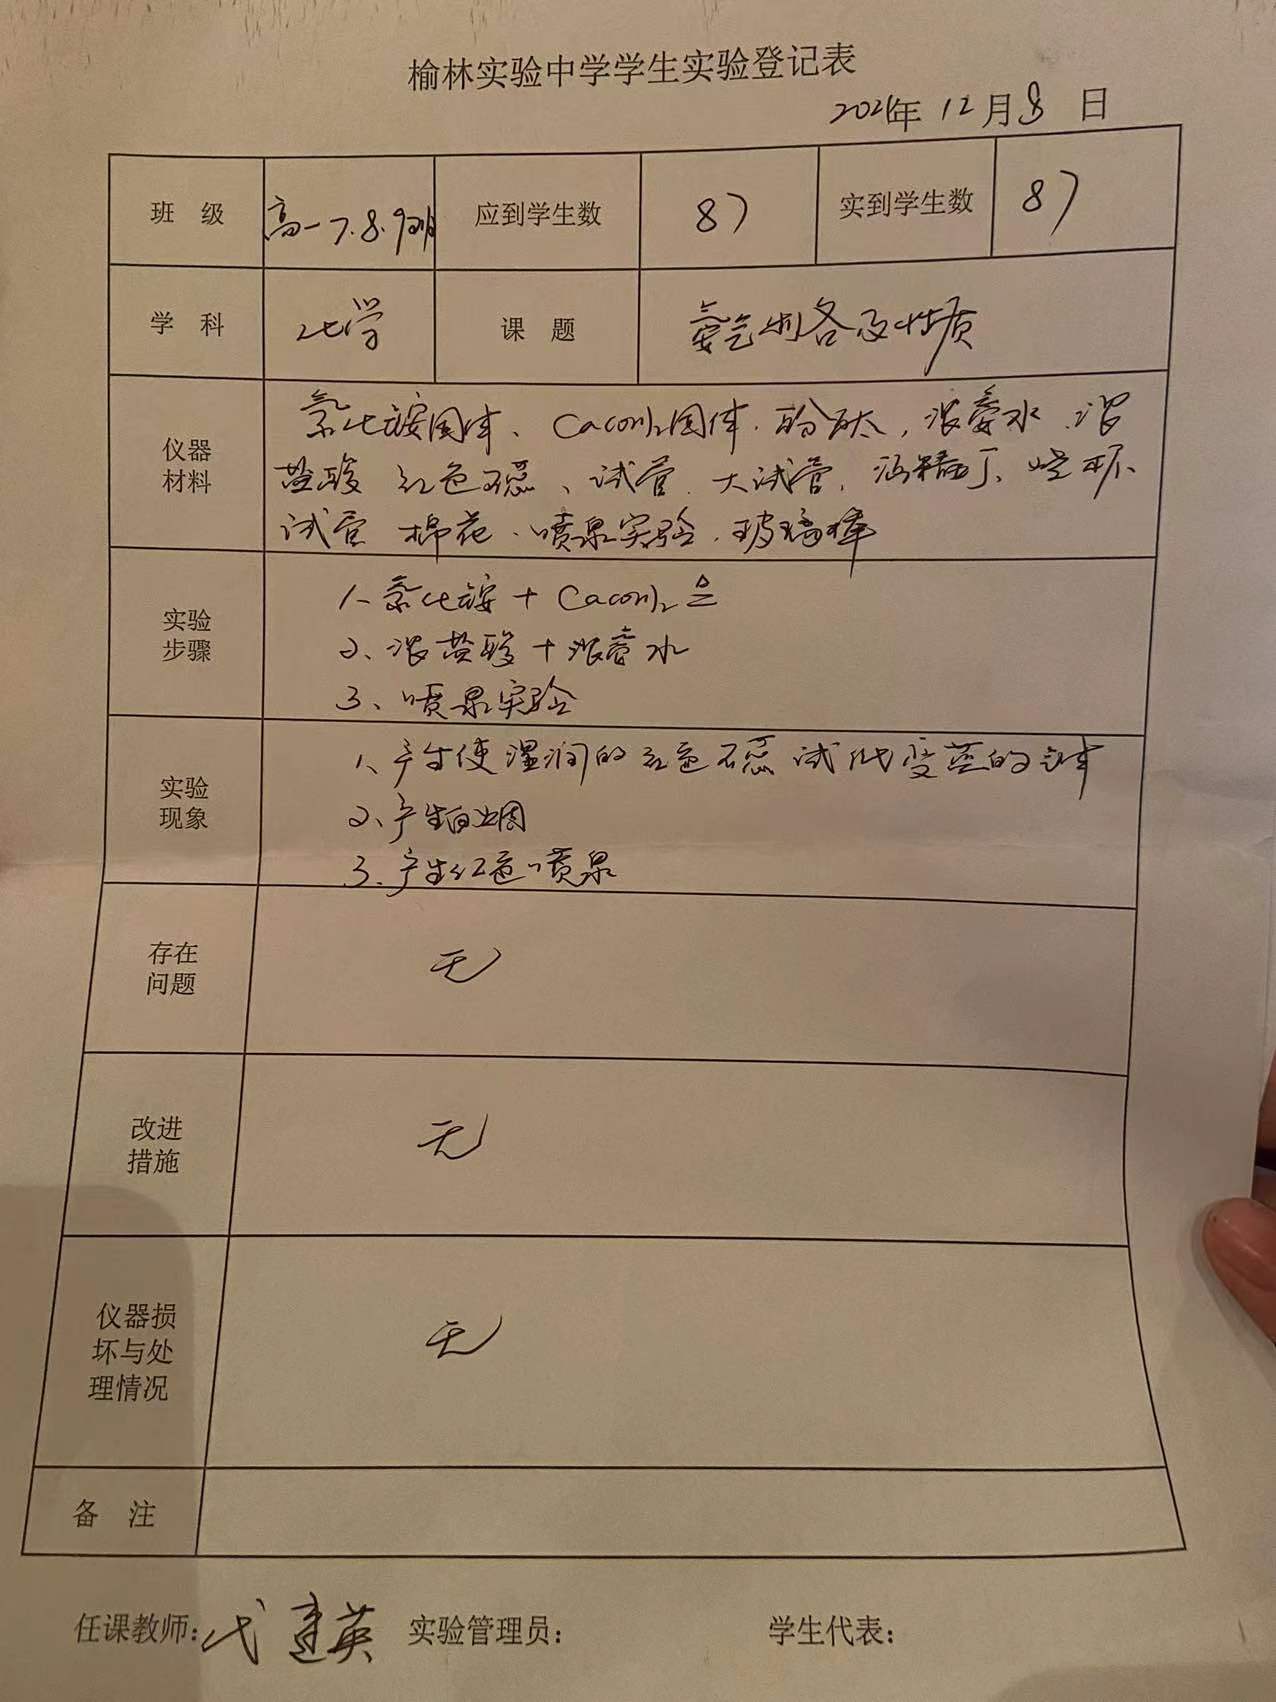 榆林实验中学学生实验登记表
2021年 12月 8 日
班 级 高一7.8.9班 应到学生数 87 实到学生数 87
学 科 化学 课 题 氨气制备及性质
仪器材料
氯化铵固体、Ca(OH)2固体.酚酞,浓氨水.浓
盐酸 红色石蕊、试管.大试管,酒精灯、
试管 棉花.喷泉实验.玻璃棒
实验步骤
1、氯化铵+Ca(OH)2 △
2、浓盐酸+浓氨水
3、喷泉实验
实验现象
1、产生使湿润的红色石蕊试纸变蓝的气体
2、产生白烟
3.产生红色喷泉
存在问题
无
改进措施
无
仪器损坏与处理情况
无
备 注
任课教师:代建英 实验管理员: 学生代表: